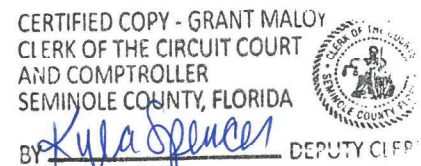 CERTIFIED COPY - GRANT MALOY
CLERK OF THE CIRCUIT COURT
AND COMPTROLLER
SEMINOLE COUNTY, FLORIDA
BY Kyla Spencer DEPUTY CLER
CLERK OF THE
SEMINOLE COUNTY